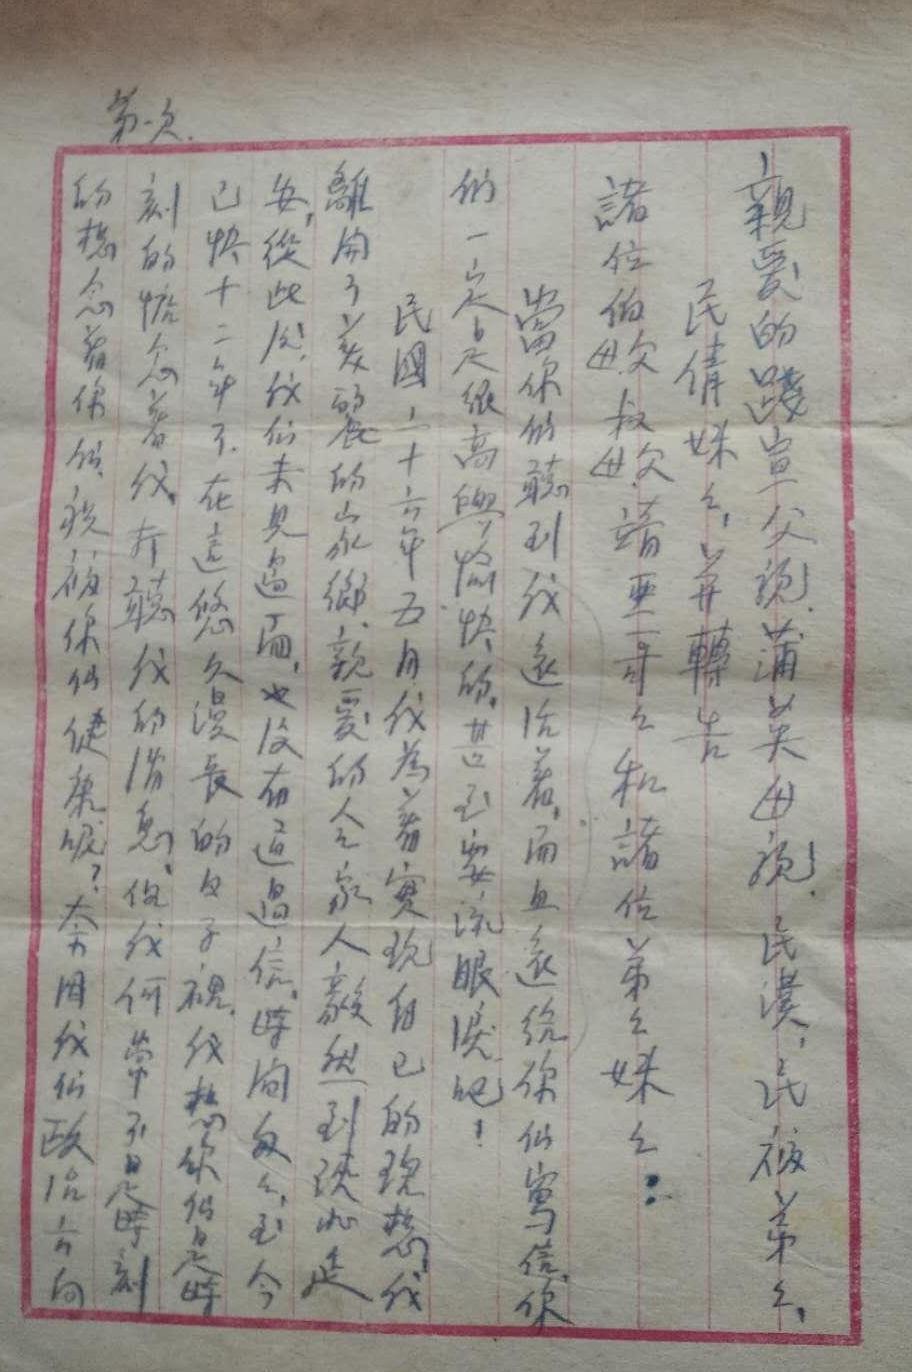 第一次.
親愛的踐宣父親.蒲英母親.民漢,民极弟々,
民倩妹々,并轉告
諸位伯父母叔父母諸亚哥々和諸位弟々妹々:
當你們聽到我还活着,而且还給你們寫信,你
們一定是很高興愉快的.甚至要流眼淚吧!
民國二十六年五月我為着實現自己的理想,我
離開了美麗的家鄉,親愛的全家人毅然到陝北延
安,從此後,我們未見過面,也没有通過信,時間匆々,至今
已快十二年了.在這悠久漫長的日子裡,我想你們是時
刻的惦念着我,打聽我的消息,但我何嘗不是時刻
的想念着你們,祝祷你們健康呢?奈因我們政治方向